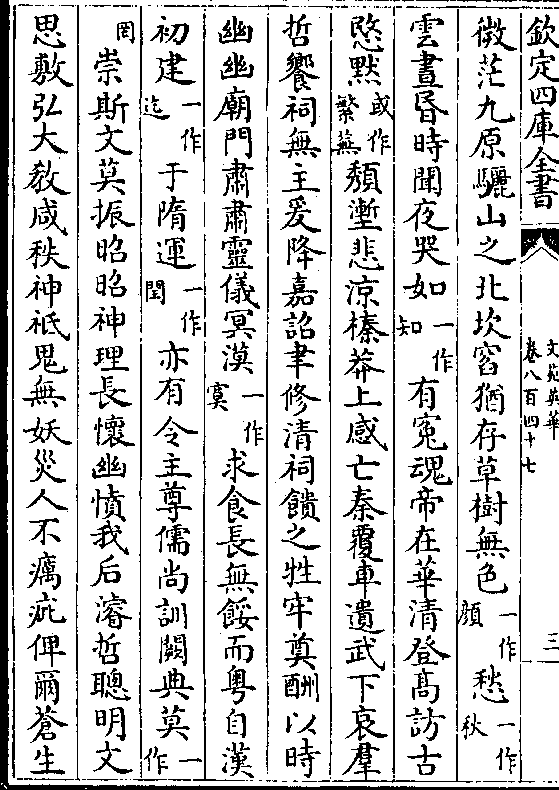 欽定四庫全書
文苑英華
卷八百四十七
三
微茫九原驪山之北坎窞猶存草樹無色一作顔愁一作秋
雲晝昏時聞夜哭如一作知有寃魂帝在華清登髙訪古
愍默或作繁蕪頽壍悲涼榛莽上感亡秦覆車遺武下哀羣
哲饗祠無主爰降嘉詔聿修清祠饋之牲牢奠酬以時
幽幽廟門肅肅靈儀冥漠一作寞求食長無餒而粤自漢
初建一作迄于隋運一作閏亦有令主尊儒尚訓闕典莫一作
罔崇斯文莫振昭昭神理長懷幽憤我后濬哲聰明文
思敷弘大教咸秩神祇鬼無妖災人不癘疵俾爾蒼生